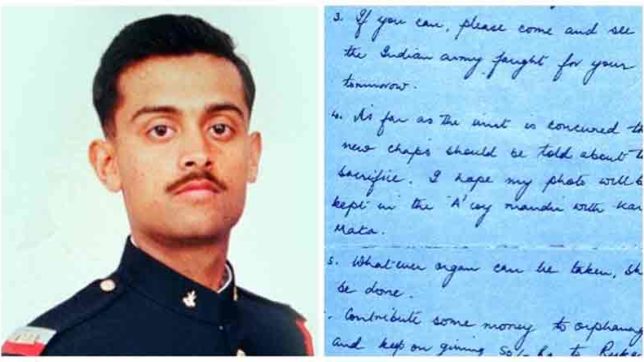 3. If you can, please come and see
the Indian army fought for your
tommorow.
4. As far as the unit is concerned th
new chaps should be told about t
sacrifice. I hope my photo will b
kept in the 'A' coy mandir with Kar
Mata.
5. Whatever organ can be taken, sh
be done.
Contribute some money to orphanag
and keep on giving to